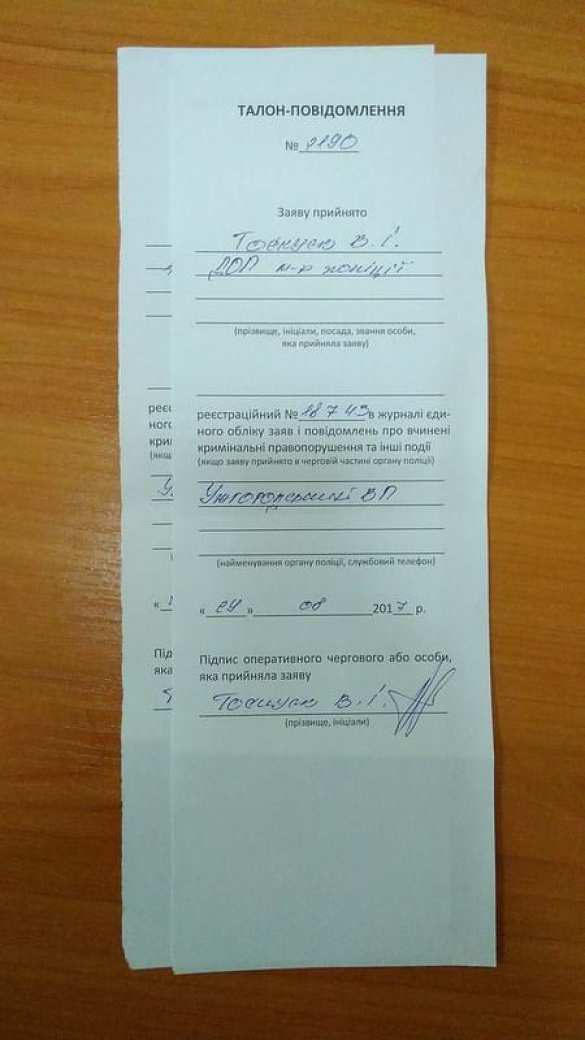 ТАЛОН-ПОВІДОМЛЕННЯ
№ 2190
Заяву прийнято
В. І.
ДОП м-р поліції
(прізвище, ініціали, посада, звання особи,
яка прийняла заяву)
реєстраційний № 18743 в журналі єди-
ного обліку заяв і повідомлень про вчинені
кримінальні правопорушення та інші події
(якщо заяву прийнято в черговій частині органу поліції)
Ужгородський ВП
(найменування органу поліції, службовий телефон)
« 24 » 08 2017 р.
Підпис оперативного чергового або особи,
яка прийняла заяву
В. І.
(прізвище, ініціали)